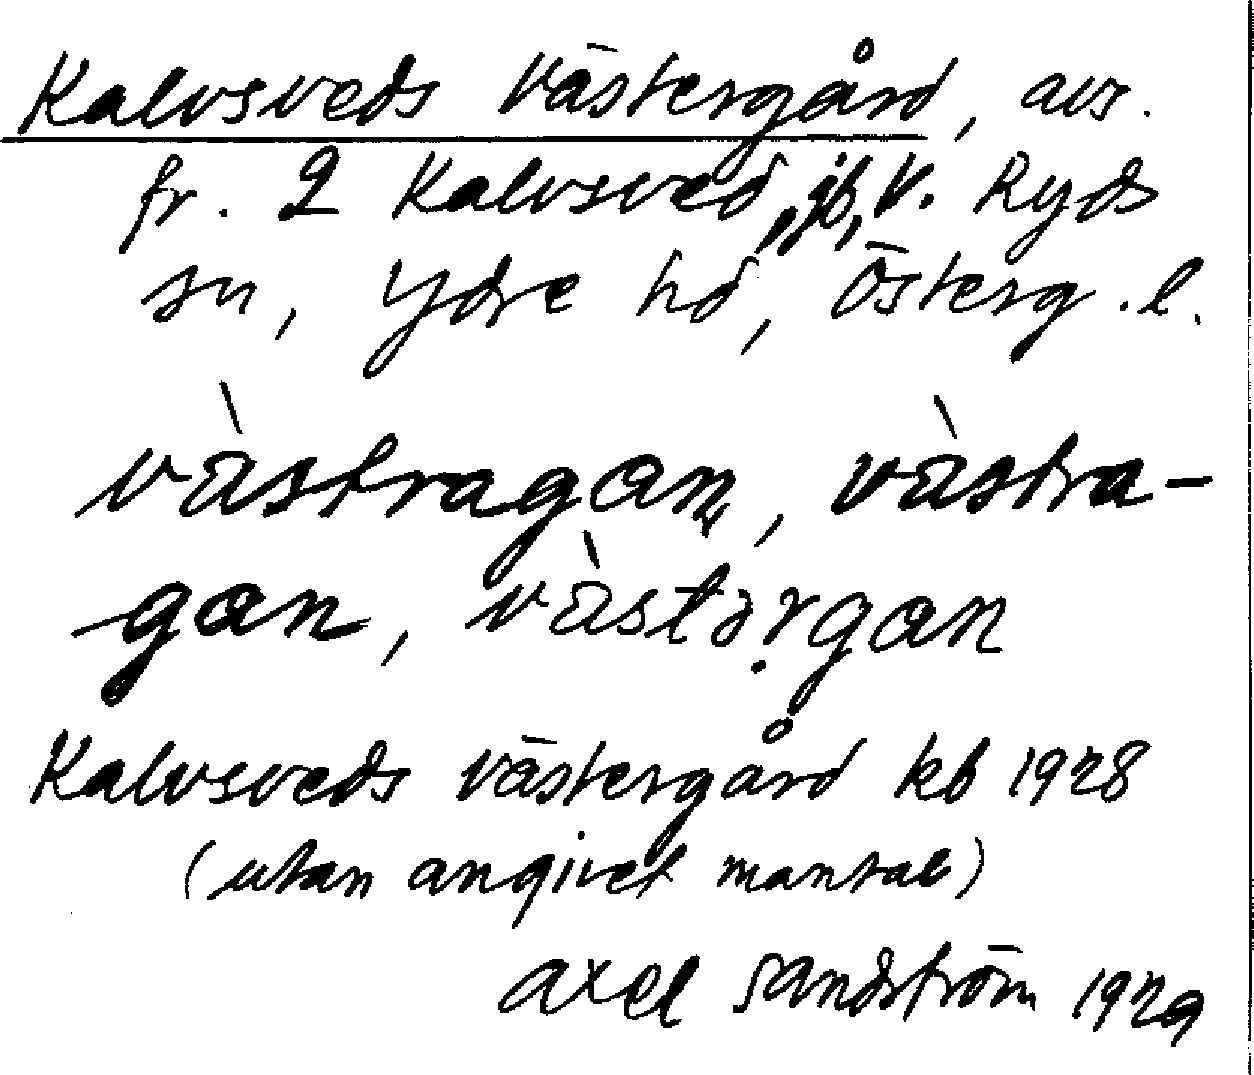 Kalvsveds Västergård, avs.
fr. 2 Kalvsved, jb, V. Ryds
sn, Ydre hd, Österg.l.
vàstragan, vàstra-
gan, vàstərgan
Kalvsveds Västergård kb 1928
(utan angivet mantal)
Axel Sandström 1929